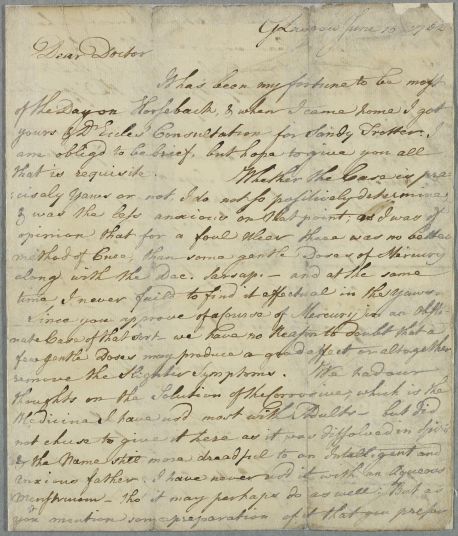 June 13 1782
Dear Doctor
It has been my fortune to be most
of the Day on Horseback, & when I came home I got
yours & Dr Eccles's Consultation for Sandy Trotter.
am obligd to be brief, but hope to give you all
that is requisite. Whether the Case is pre
:cisely Yaws or not, I do not so positively determine
& was the less anxious on that point, as I was of
opinion that for a foul Ulcer there was no better
method of Cure, than some gentle Doses of Mercury
along with the Dec. Sarsap. — and at the same
time I never faild to find it effectual in the Yaws.
Since you approve of a Course of Mercury in an obsti-
nate Case of that sort — we have no Reason to doubt that a
few gentle Doses may produce a good effect or altogether
remove the Slighter Symptoms. We had our
thoughts on the Solution of the Corrosive, which is the
Medicine I have usd most with Adults — but did
not chuse to give it here as it was dissolved in
& the Name still more dreadful to an Intelligent and
anxious father. I have never usd it with an Aqueous
Menstruum — tho' it may perhaps do as well; But as
you mention some preparation of it that you prefer